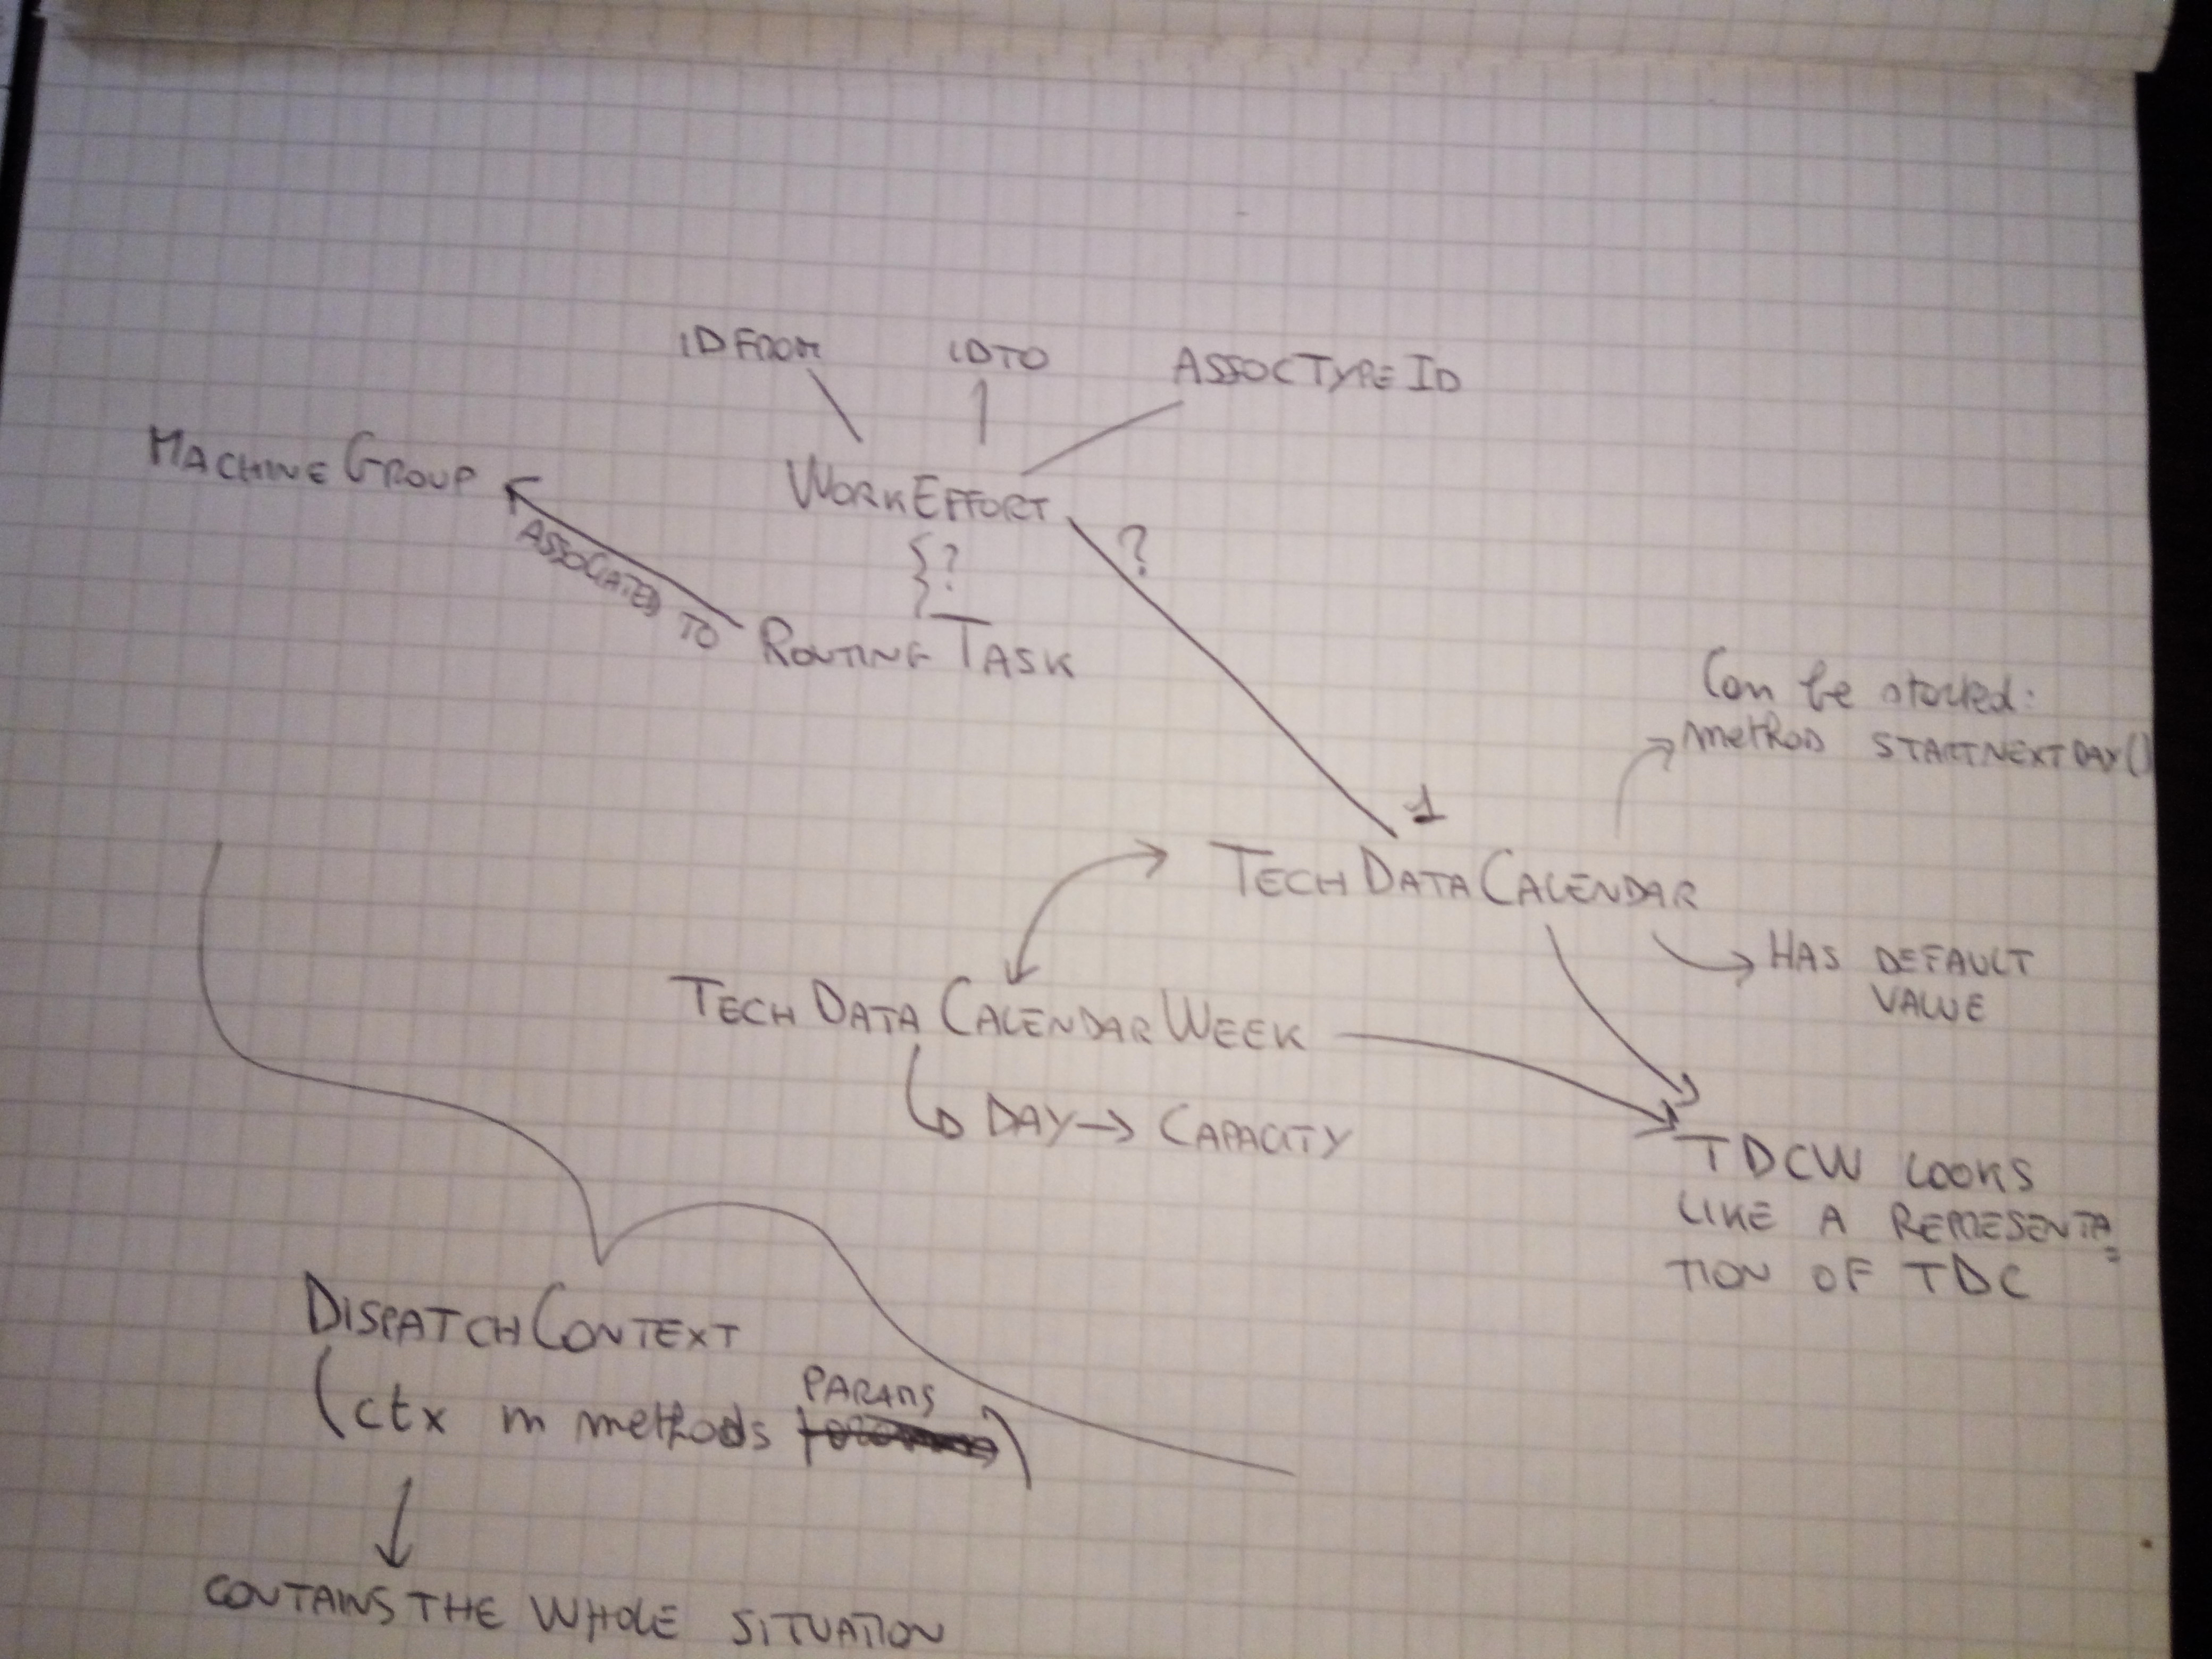 IDFROM
IDTO
ASSOCTYPEID
MACHINEGROUP
WORKEFFORT
?
?
ASSOCIATED TO
ROUTING TASK
Can be started:
method STARTNEXTDAY()
1
TECHDATACALENDAR
HAS DEFAULT
VALUE
TECHDATACALENDARWEEK
DAY → CAPACITY
TDCW LOOKS
LIKE A REPRESENTA
TION OF TDC
DISPATCHCONTEXT
PARAMS
(ctx in methods )
CONTAINS THE WHOLE SITUATION